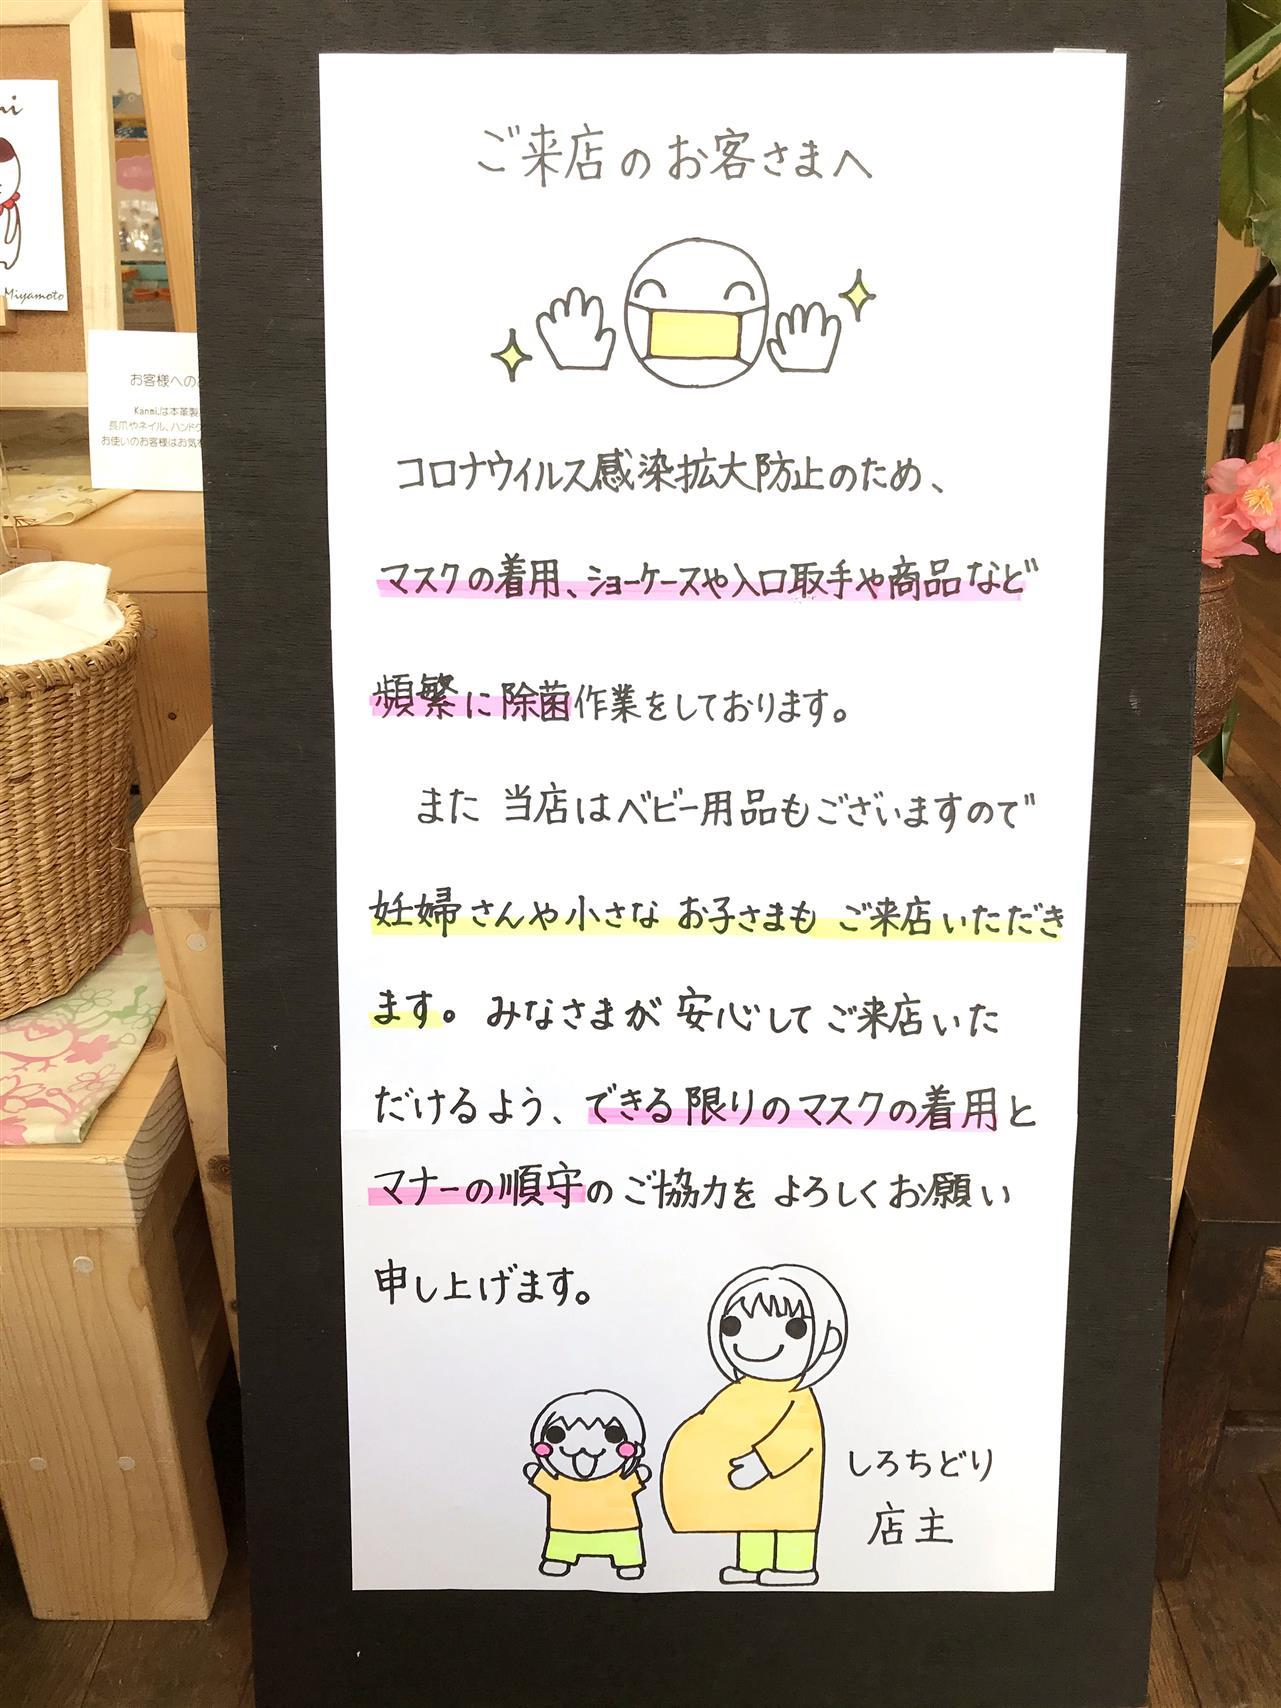 ご来店のお客さまへ
コロナウイルス感染拡大防止のため、
マスクの着用、ショーケースや入口取手や商品など
頻繁に除菌作業をしております。
また 当店はベビー用品もございますので
妊婦さんや小さな お子さまも ご来店いただき
ます。みなさまが 安心して ご来店いた
だけるよう、できる限りのマスクの着用と
マナーの順守の ご協力を よろしくお願い
申し上げます。
しろちどり
店主
Miyamoto
お客様への
Kanmi.は本革製
長爪やネイル、ハンドク
お使いのお客様はお気